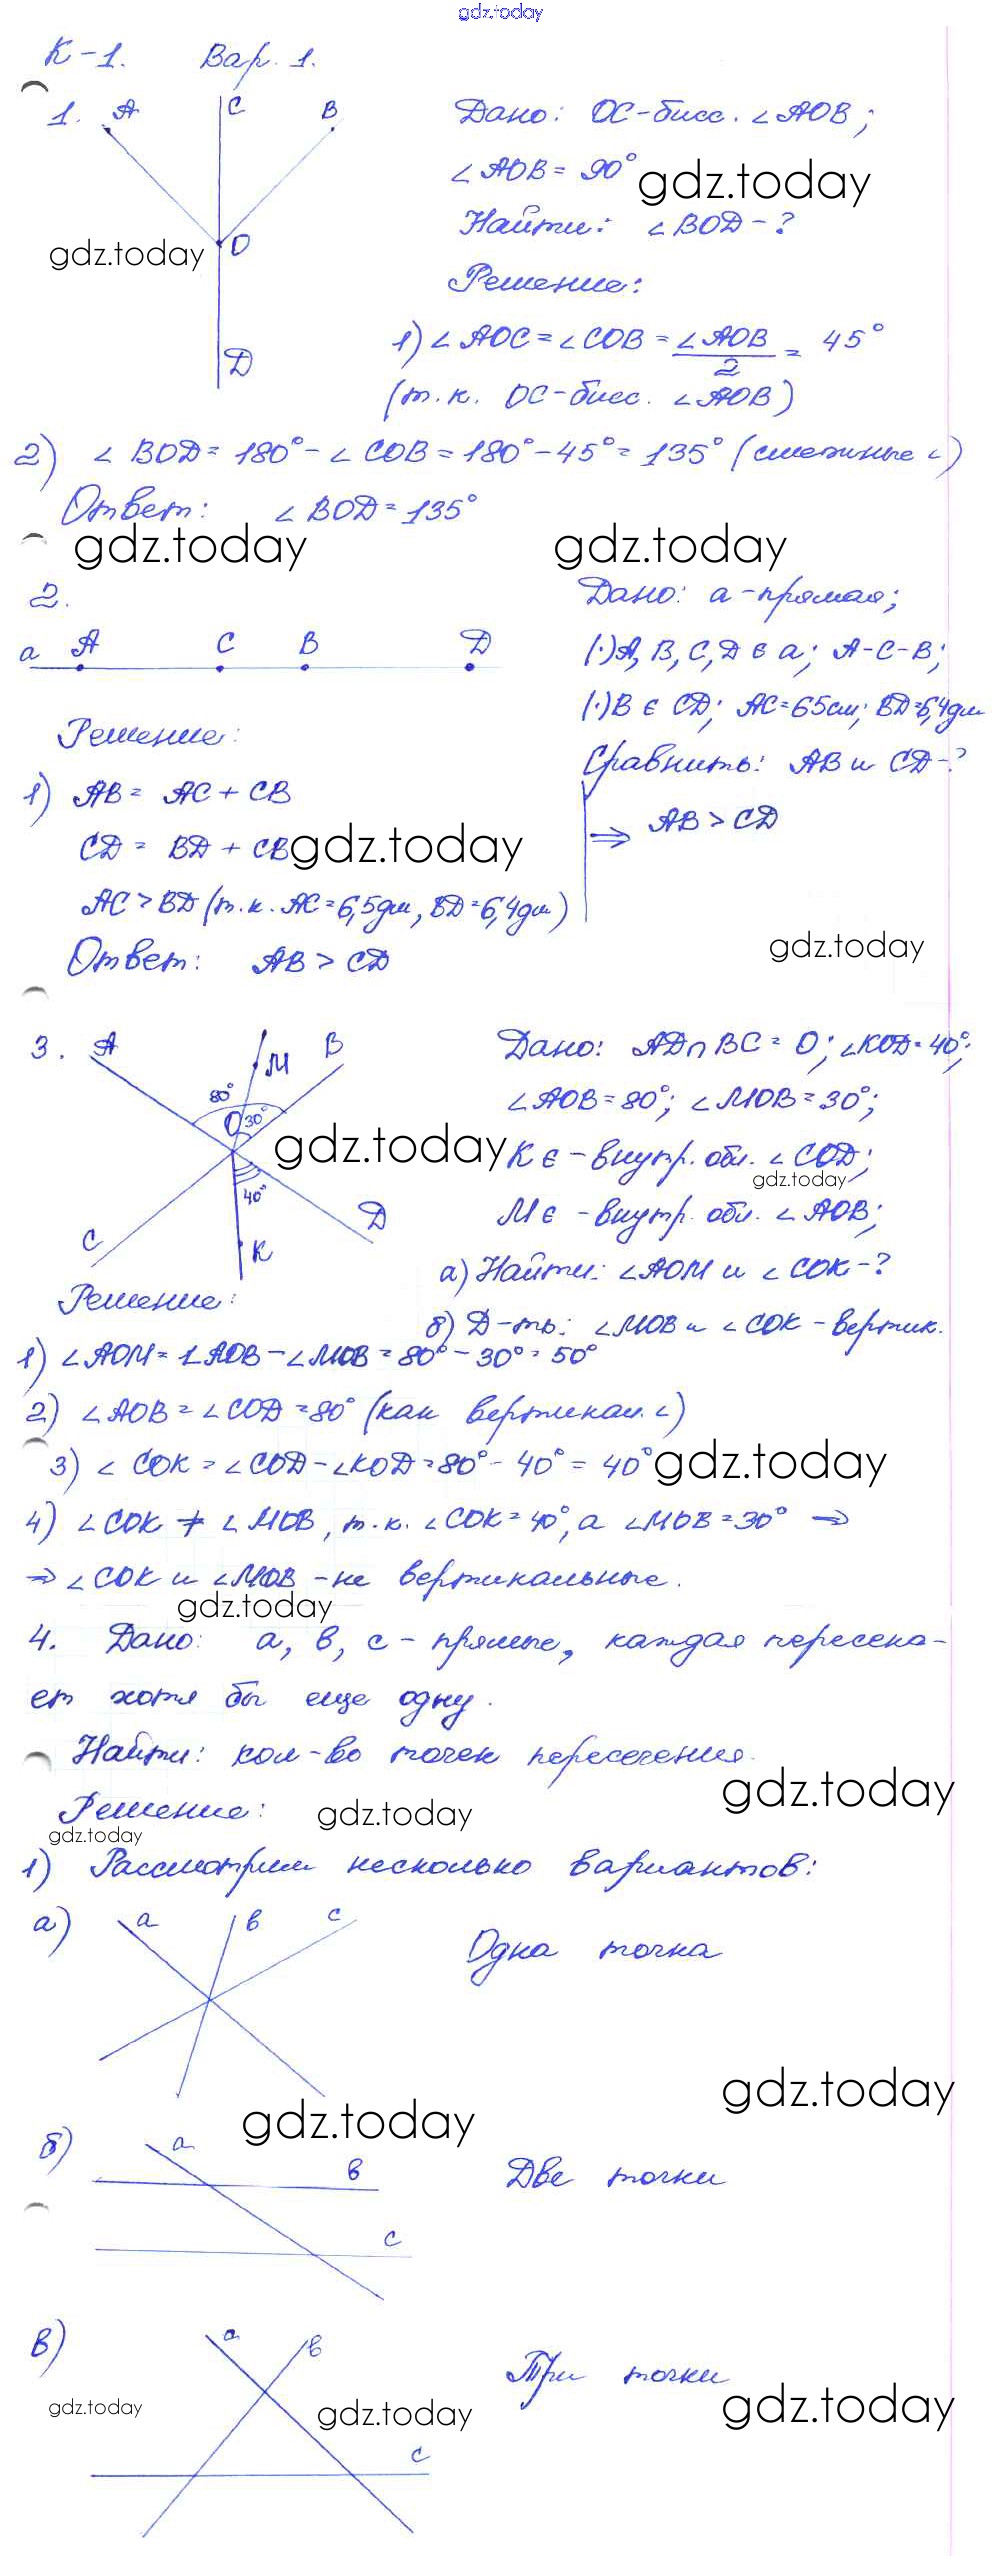 gdz.today
К-1. Вар. 1.
1. A C B O D
Дано: OC-бисс. ∠AOB;
∠AOB = 90°
gdz.today
Найти: ∠BOD-?
gdz.today
Решение:
1) ∠AOC = ∠COB = ∠AOB/2 = 45°
(т.к. OC-бисс. ∠AOB)
2) ∠BOD = 180° - ∠COB = 180° - 45° = 135° (смежные ∠)
Ответ: ∠BOD = 135°
gdz.today gdz.today
2.
a A C B D
Дано: a-прямая;
(·)A, B, C, D ∈ a; A-C-B;
(·)B ∈ CD; AC=65см; BD=6,4дм
Сравнить: AB и CD-?
Решение:
1) AB = AC + CB
CD = BD + CB
gdz.today
⇒ AB > CD
AC > BD (т.к. AC=6,5дм, BD=6,4дм)
Ответ: AB > CD
gdz.today
3. A M B 80° O 30° 40° C K D
Дано: AD∩BC = O; ∠KOD=40°;
∠AOB=80°; ∠MOB=30°;
gdz.today
K ∈ -внутр. обл. ∠COD;
gdz.today
M ∈ -внутр. обл. ∠AOB;
а) Найти: ∠AOM и ∠COK-?
б) Д-ть: ∠MOB и ∠COK - вертик.
Решение:
1) ∠AOM = ∠AOB - ∠MOB = 80° - 30° = 50°
2) ∠AOB = ∠COD = 80° (как вертикал. ∠)
3) ∠COK = ∠COD - ∠KOD = 80° - 40° = 40°
gdz.today
4) ∠COK ≠ ∠MOB, т.к. ∠COK = 40°, а ∠MOB = 30° ⇒
⇒ ∠COK и ∠MOB - не вертикальные.
gdz.today
4. Дано: a, b, c - прямые, каждая пересека-
ет хотя бы еще одну.
Найти: кол-во точек пересечения.
gdz.today
Решение:
gdz.today
gdz.today
1) Рассмотрим несколько вариантов:
а) a b c Одна точка
gdz.today
gdz.today
б) a b c Две точки
в) a b c Три точки
gdz.today gdz.today gdz.today